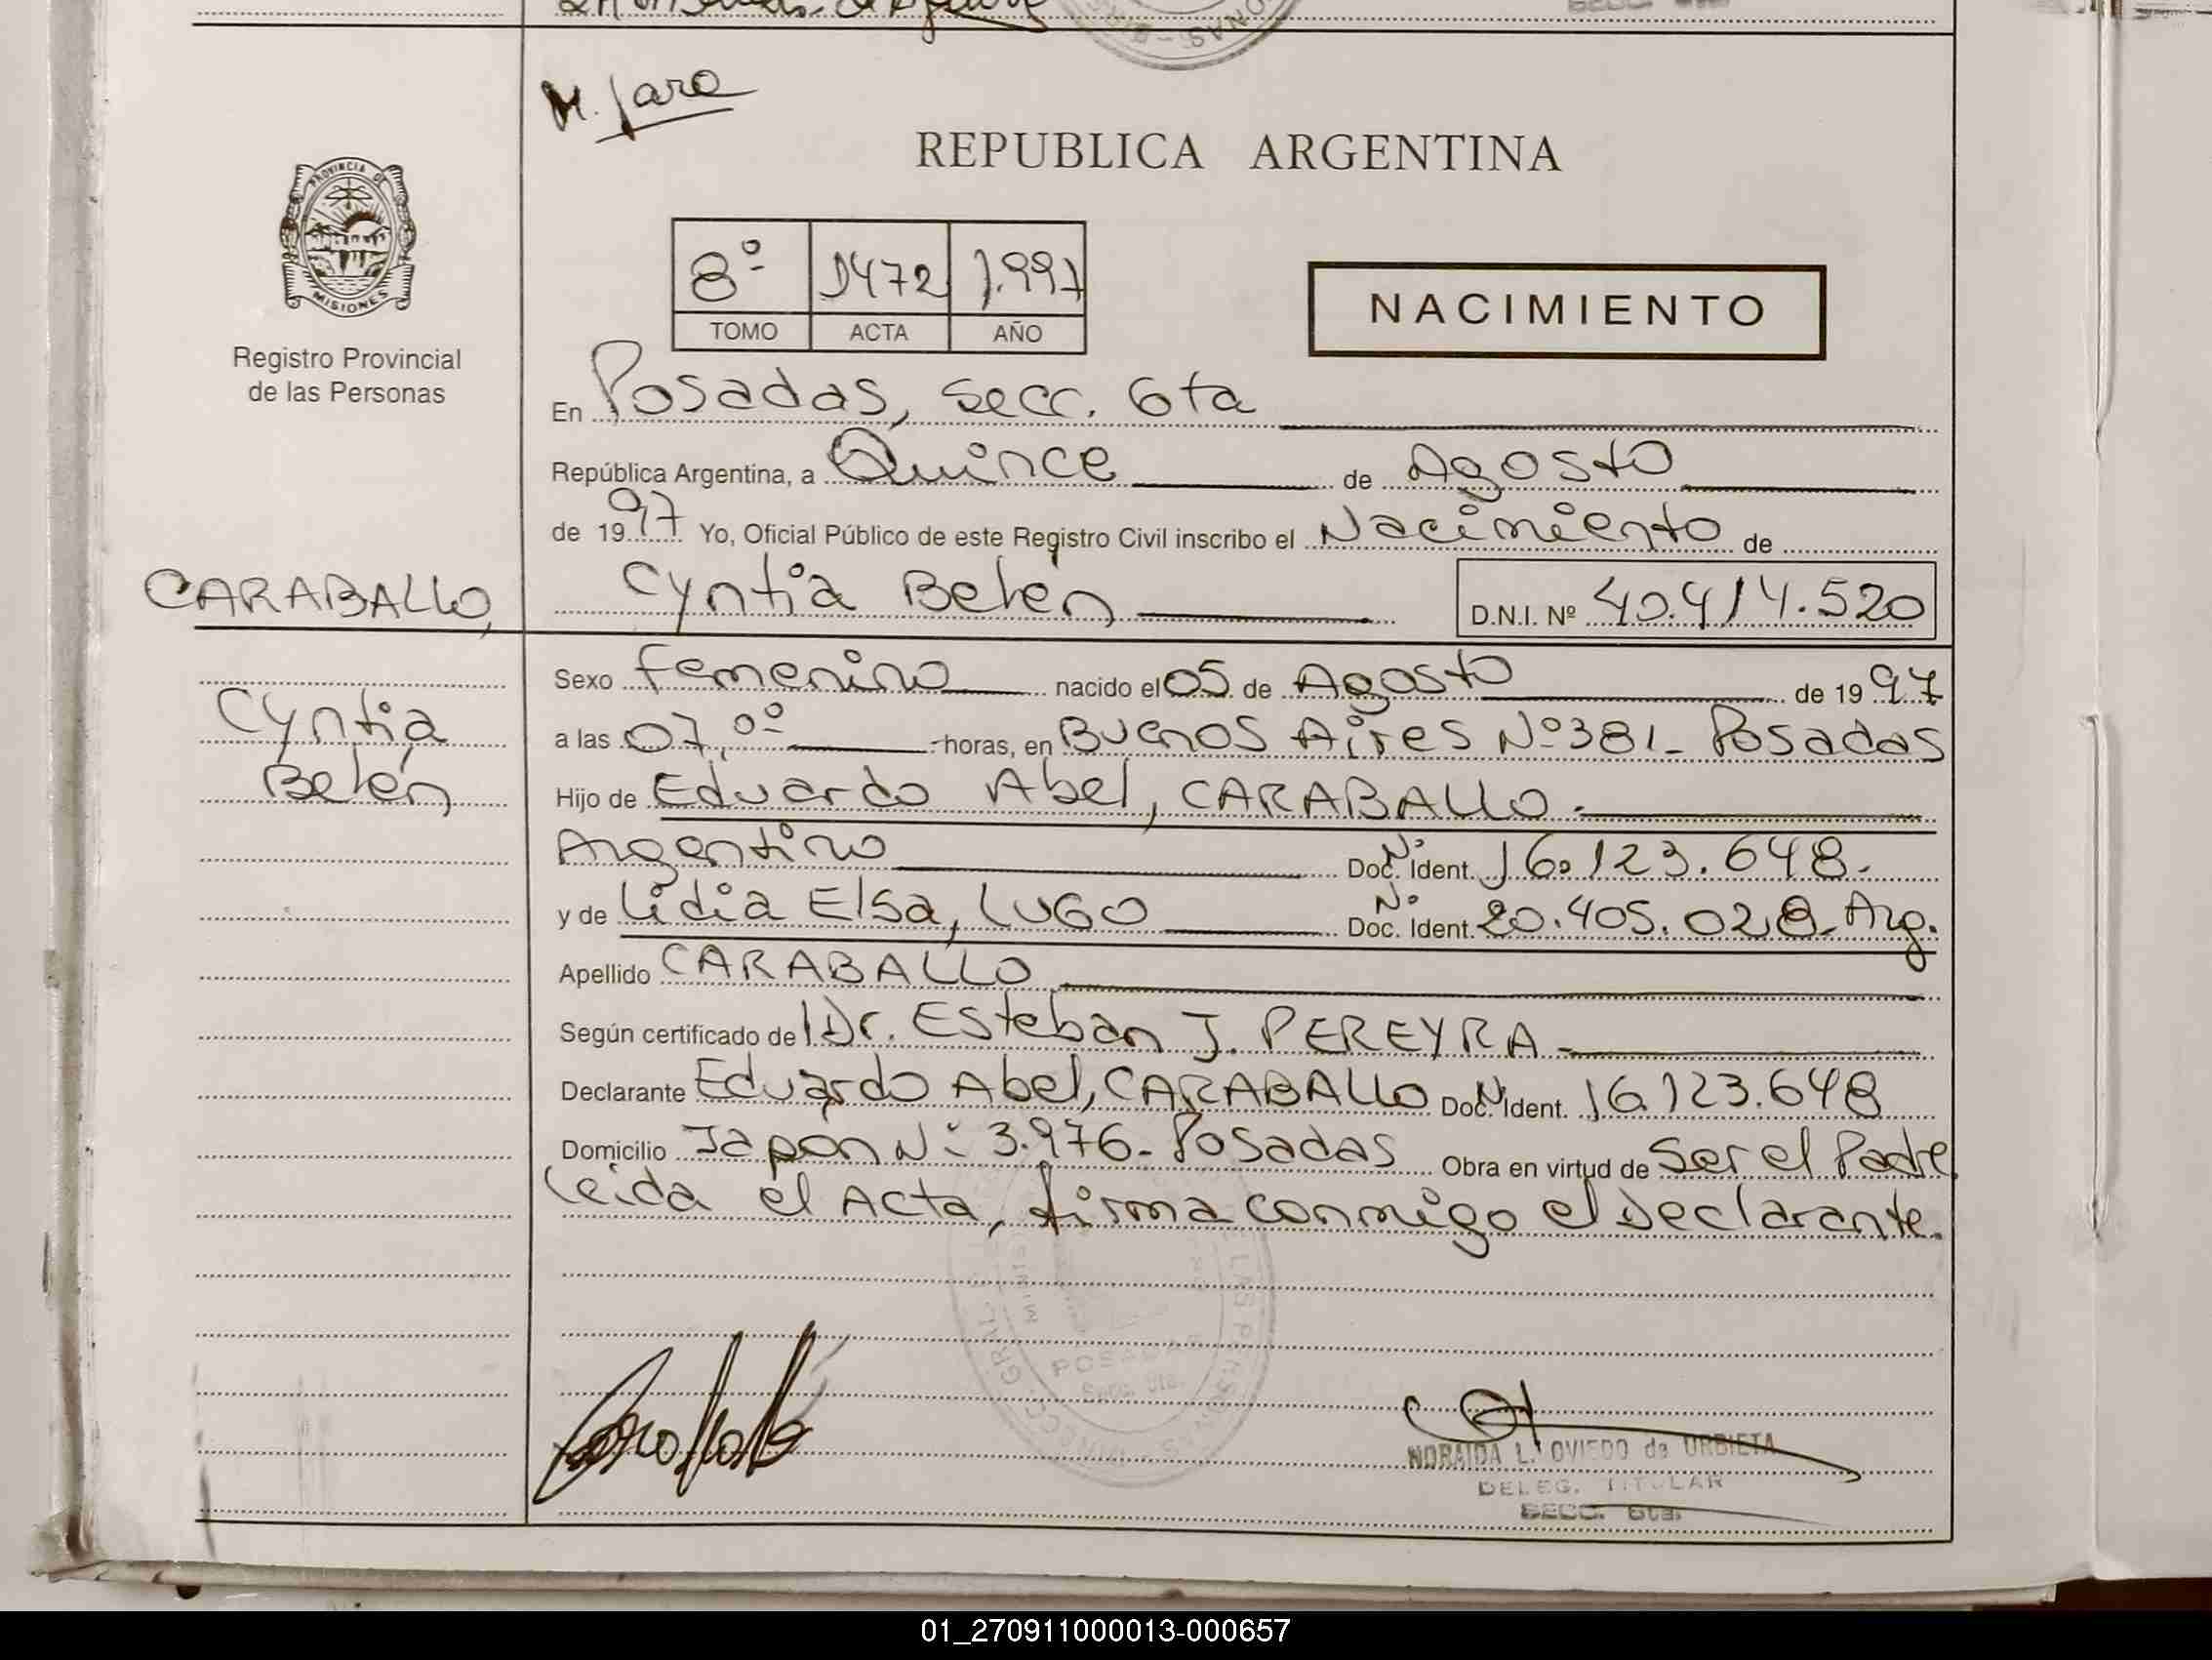 M. Jara
REPUBLICA ARGENTINA
PROVINCIA DE
MISIONES
Registro Provincial
de las Personas
8º 1472 1.997
TOMO ACTA AÑO
NACIMIENTO
En Posadas, secc. 6ta
República Argentina, a Quince de Agosto
de 1997 Yo, Oficial Público de este Registro Civil inscribo el Nacimiento de
CARABALLO, Cyntia Belén D.N.I. Nº 40.414.520
Cyntia
Belén
Sexo Femenino nacido el 05 de Agosto de 1997
a las 07,ºº horas, en Buenos Aires Nº 381- Posadas
Hijo de Eduardo Abel, CARABALLO.
Argentino Doc. Nº Ident. 16.123.648.
y de Lidia Elsa, LUGO Doc. Nº Ident. 20.405.028- Arg.
Apellido CARABALLO
Según certificado del Dr. Esteban J. PEREYRA
Declarante Eduardo Abel, CARABALLO Doc. Nº Ident. 16.123.648
Domicilio Japón Nº 3.976- Posadas Obra en virtud de Ser el Padre
Leida el Acta, firma conmigo el Declarante.
POSADAS
Secc. 6ta.
NORAIDA L. OVIEDO de URBIETA
DELEG. TITULAR
SECC. 6ta.
01_270911000013-000657